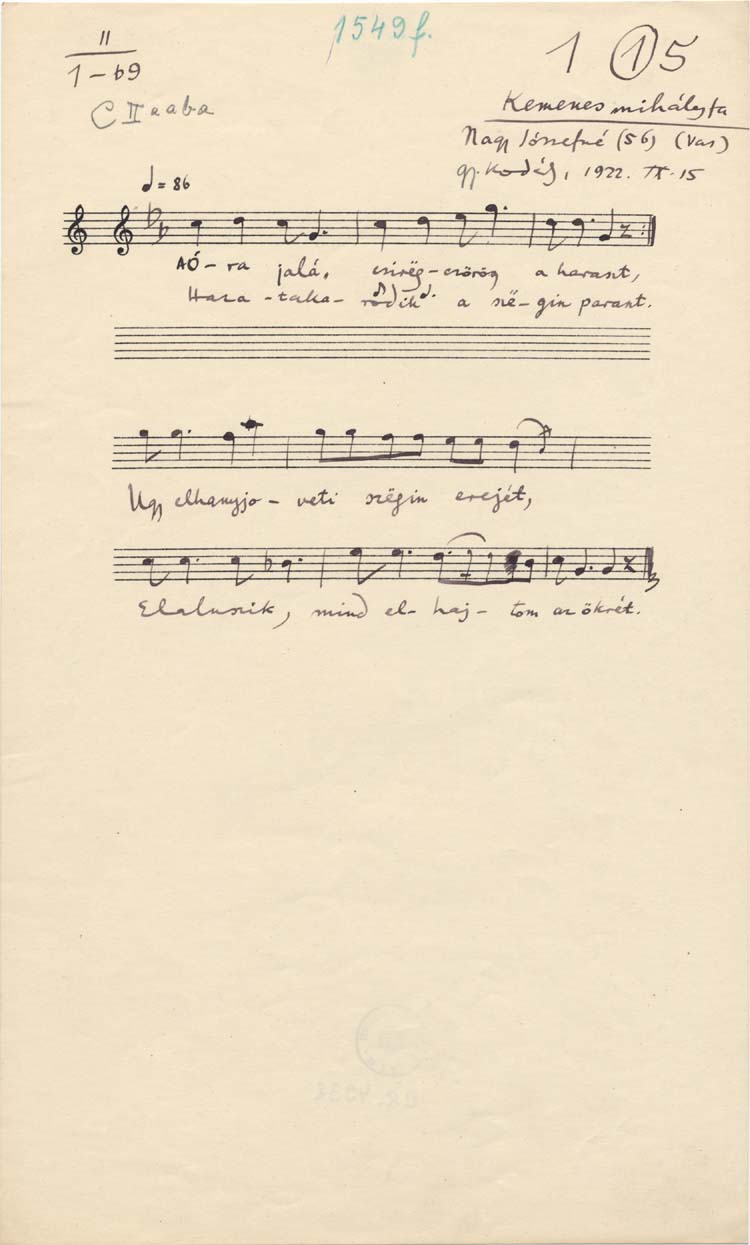 1549 f.
II
1-b9
1 1 5
C II aaba
Kemenes mihályfa
Nagy Józsefné (56) (Vas)
gy. Kodály, 1922. IX. 15
= 86
AÓ-ra jalá, csirëg-csörög a haraszt,
Haza-taka-rodik a szë-gin paraszt.
Ugy elhanyjo-veti szëgin erejét,
Elaluszik, mind el-haj-tom az ökrét.